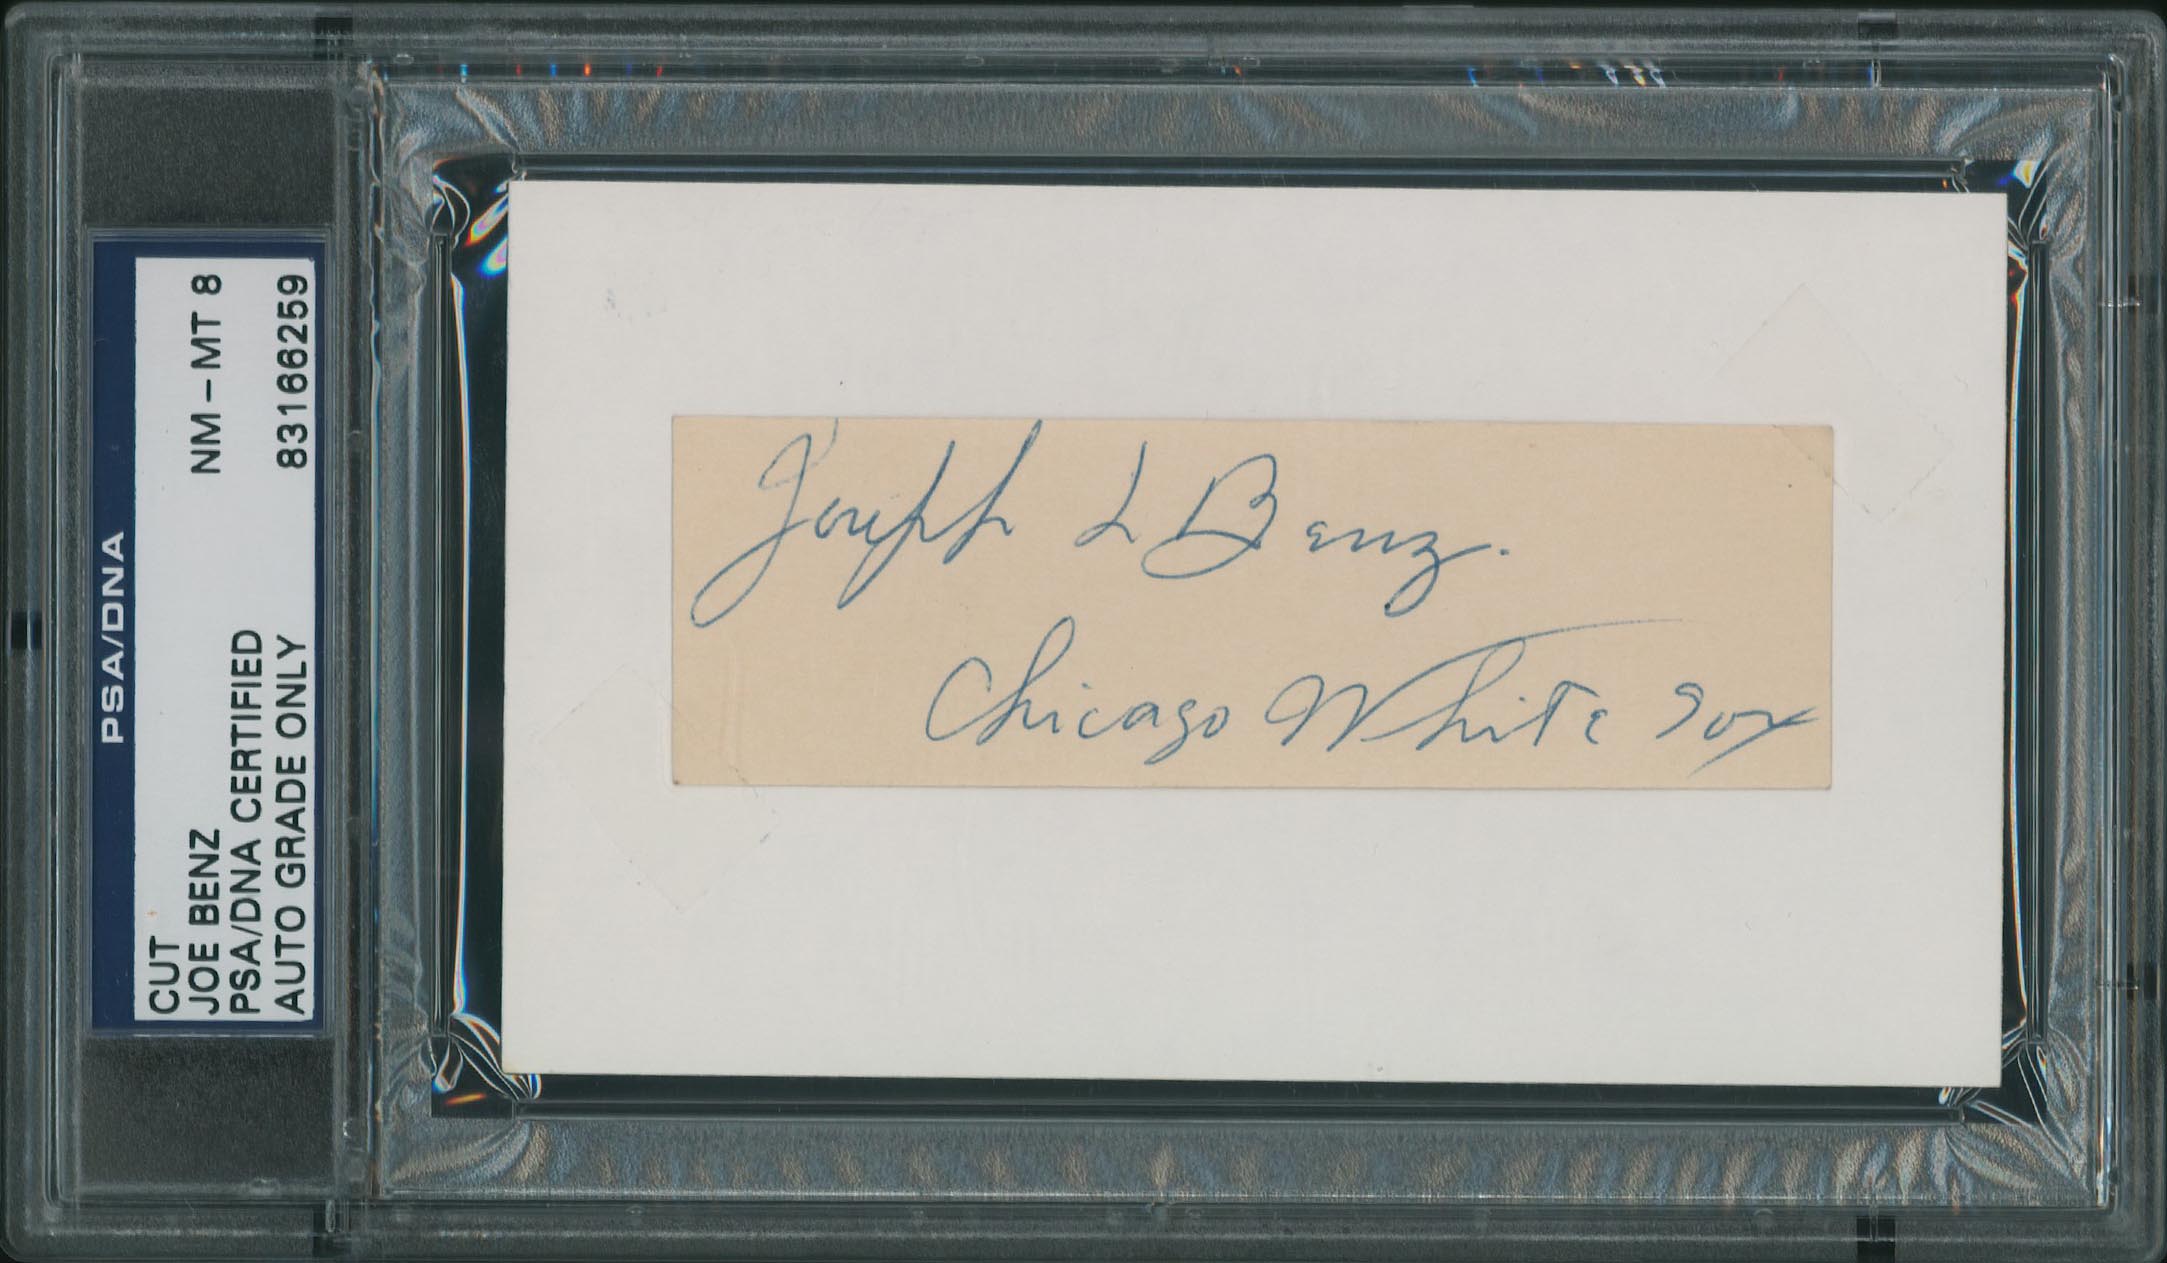 PSA/DNA
CUT
JOE BENZ NM-MT 8
PSA/DNA CERTIFIED
AUTO GRADE ONLY 83166259
Joseph L Benz.
Chicago White Sox